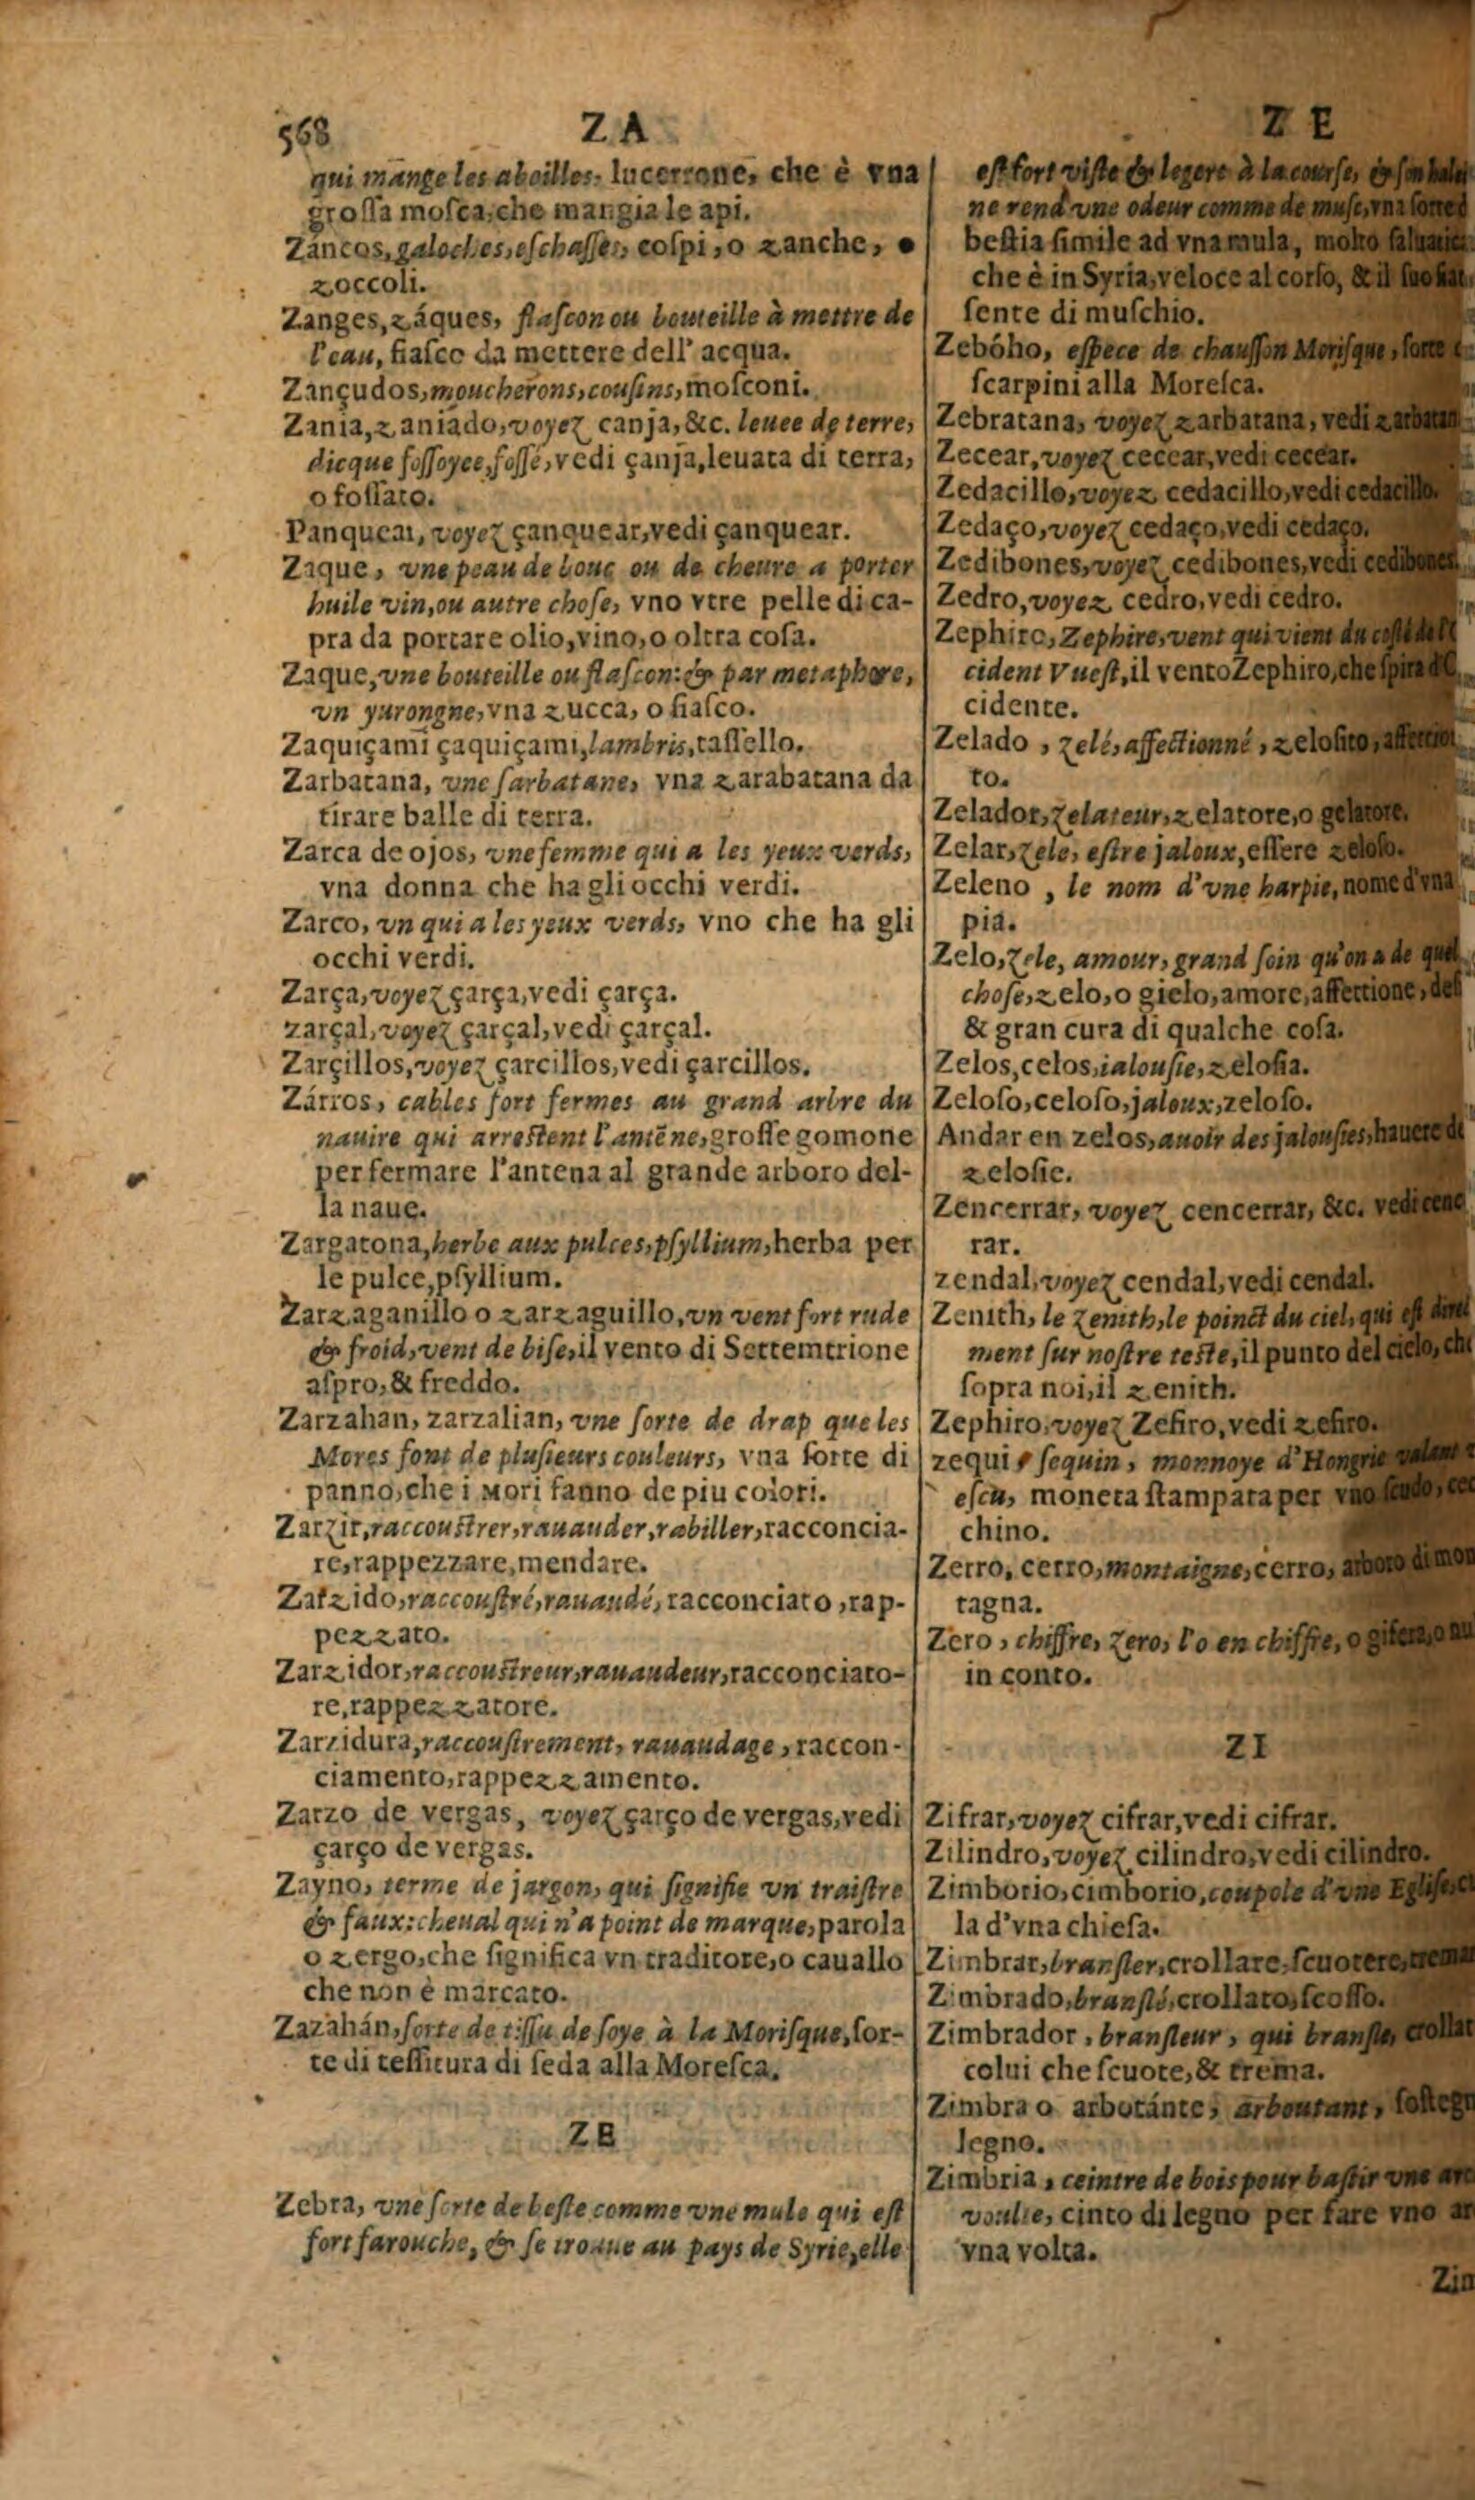 568
ZA
qui mange les abeilles. lucerrone, che è vna
grossa mosca, che mangia le api.
Záncos, galoches, eschasses, cospi, o zanche, o
zoccoli.
Zanges, záques, flascon ou bouteille à mettre de
l'eau, fiasco da mettere dell' acqua.
Zançudos, moucherons, cousins, mosconi.
Zania, zaniado, voyez canja, &c. leuee de terre,
dicque fossoyee, fossé, vedi çanja, leuata di terra,
o fossato.
Panquear, voyez çanquear, vedi çanquear.
Zaque, vne peau de bouc ou de cheure a porter
huile vin, ou autre chose, vno vtre pelle di ca-
pra da portare olio, vino, o oltra cosa.
Zaque, vne bouteille ou flascon: & par metaphore,
vn yurongne, vna zucca, o fiasco.
Zaquiçami çaquiçami, lambris, tassello.
Zarbatana, vne sarbatane, vna zarabatana da
tirare balle di terra.
Zarca de ojos, vne femme qui a les yeux verds,
vna donna che ha gli occhi verdi.
Zarco, vn qui a les yeux verds, vno che ha gli
occhi verdi.
Zarça, voyez çarça, vedi çarça.
zarçal, voyez çarçal, vedi çarçal.
Zarçillos, voyez çarcillos, vedi çarcillos.
Zárros, cables fort fermes au grand arbre du
nauire qui arrestent l'antēne, grosse gomone
per fermare l'antena al grande arboro del-
la naue.
Zargatona, herbe aux pulces, psyllium, herba per
le pulce, psyllium.
Zarzaganillo o zarzaguillo, vn vent fort rude
& froid, vent de bise, il vento di Settemtrione
aspro, & freddo.
Zarzahan, zarzalian, vne sorte de drap que les
Mores font de plusieurs couleurs, vna sorte di
panno, che i Mori fanno de piu colori.
Zarzir, raccoustrer, rauauder, rabiller, racconcia-
re, rappezzare, mendare.
Zarzido, raccoustré, rauaudé, racconciato, rap-
pezzato.
Zarzidor, raccoustreur, rauaudeur, racconciato-
re, rappezzatore.
Zarzidura, raccoustrement, rauaudage, raccon-
ciamento, rappezzamento.
Zarzo de vergas, voyez çarço de vergas, vedi
çarço de vergas.
Zayno, terme de jargon, qui signifie vn traistre
& faux: cheual qui n'a point de marque, parola
o zergo, che significa vn traditore, o cauallo
che non è marcato.
Zazahán, sorte de tissu de soye à la Morisque, sor-
te di tessitura di seda alla Moresca.
ZE
Zebra, vne sorte de beste comme vne mule qui est
fort farouche, & se trouue au pays de Syrie, elle
ZE
est fort viste & legere à la course, & son
ne rend vne odeur comme de musc, vna sorte d
bestia simile ad vna mula, molto saluatica
che è in Syria, veloce al corso, & il suo fiat
sente di muschio.
Zebóho, espece de chausson Morisque, sorte
scarpini alla Moresca.
Zebratana, voyez zarbatana, vedi zarbatan
Zecear, voyez cecear, vedi cecéar.
Zedacillo, voyez cedacillo, vedi cedacillo.
Zedaço, voyez cedaço, vedi cedaço.
Zedibones, voyez cedibones, vedi cedibones.
Zedro, voyez cedro, vedi cedro.
Zephiro, Zephire, vent qui vient du costé de l'
cident Vuest, il vento Zephiro, che spira
cidente.
Zelado, zelé, affectionné, zelosito, affettio
to.
Zelador, zelateur, zelatore, o gelatore.
Zelar, zele, estre jaloux, essere zeloso.
Zeleno, le nom d'vne harpie, nome d'vna
pia.
Zelo, zele, amour, grand soin qu'on a de quel
chose, zelo, o gielo, amore, affettione, des
& gran cura di qualche cosa.
Zelos, celos, ialousie, zelosia.
Zeloso, celoso, jaloux, zeloso.
Andar en zelos, auoir des jalousies, hauere de
zelosie.
Zencerrar, voyez cencerrar, &c. vedi cenc
rar.
zendal, voyez cendal, vedi cendal.
Zenith, le zenith, le poinct du ciel, qui est dire
ment sur nostre teste, il punto del cielo, che
sopra noi, il zenith.
Zephiro, voyez Zefiro, vedi zefiro.
zequi sequin, monnoye d'Hongrie valant
escu, moneta stampata per vno scudo, cec
chino.
Zerro, cerro, montaigne, cerro, arboro di mon
tagna.
Zero, chiffre, zero, l'o en chiffre, o gifera, o nu
in conto.
ZI
Zifrar, voyez cifrar, vedi cifrar.
Zilindro, voyez cilindro, vedi cilindro.
Zimborio, cimborio, coupole d'vne Eglise,
la d'vna chiesa.
Zimbrar, bransler, crollare, scuotere, tremar
Zimbrado, branslé, crollato, scosso.
Zimbrador, bransleur, qui bransle, crollat
colui che scuote, & trema.
Zimbra o arbotánte, arboutant, sostegn
legno.
Zimbria, ceintre de bois pour bastir vne arc
voulte, cinto di legno per fare vno ar
vna volta.
Zim